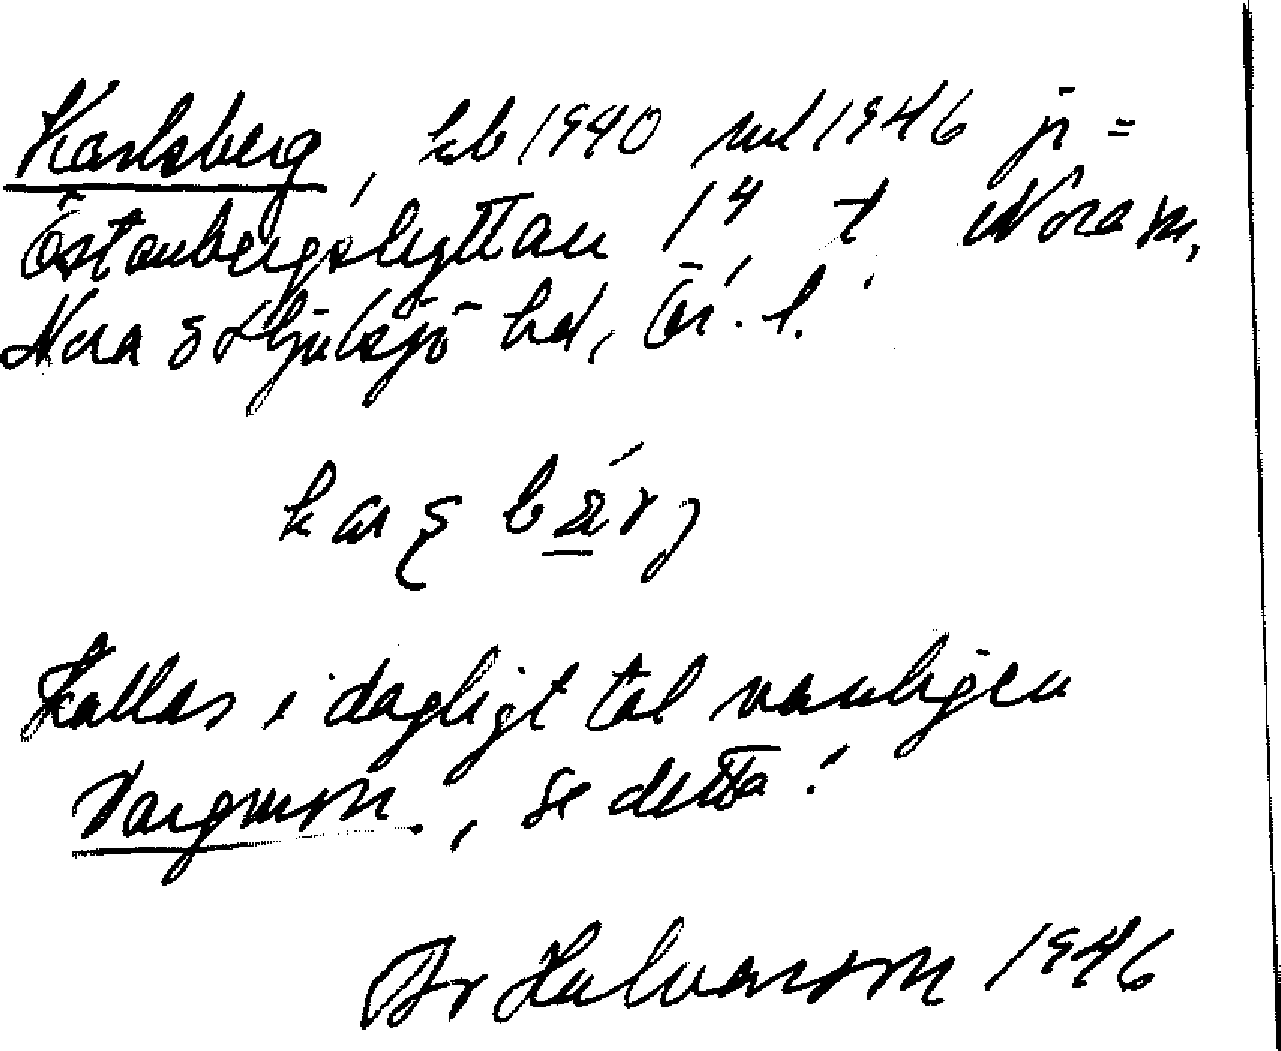 Karlsberg, kb 1940 ml 1946 jr =
Östanbergshyttan 1⁴ t Nora sn,
Nora o Hjulsjö hd, Ör. l.
Kallas i dagligt tal vanligen
se detta!
Br Halvarson 1946